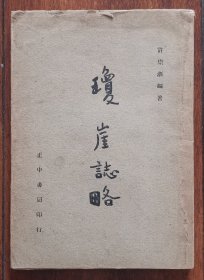 許崇灝編著
瓊崖誌略
正中書局印行